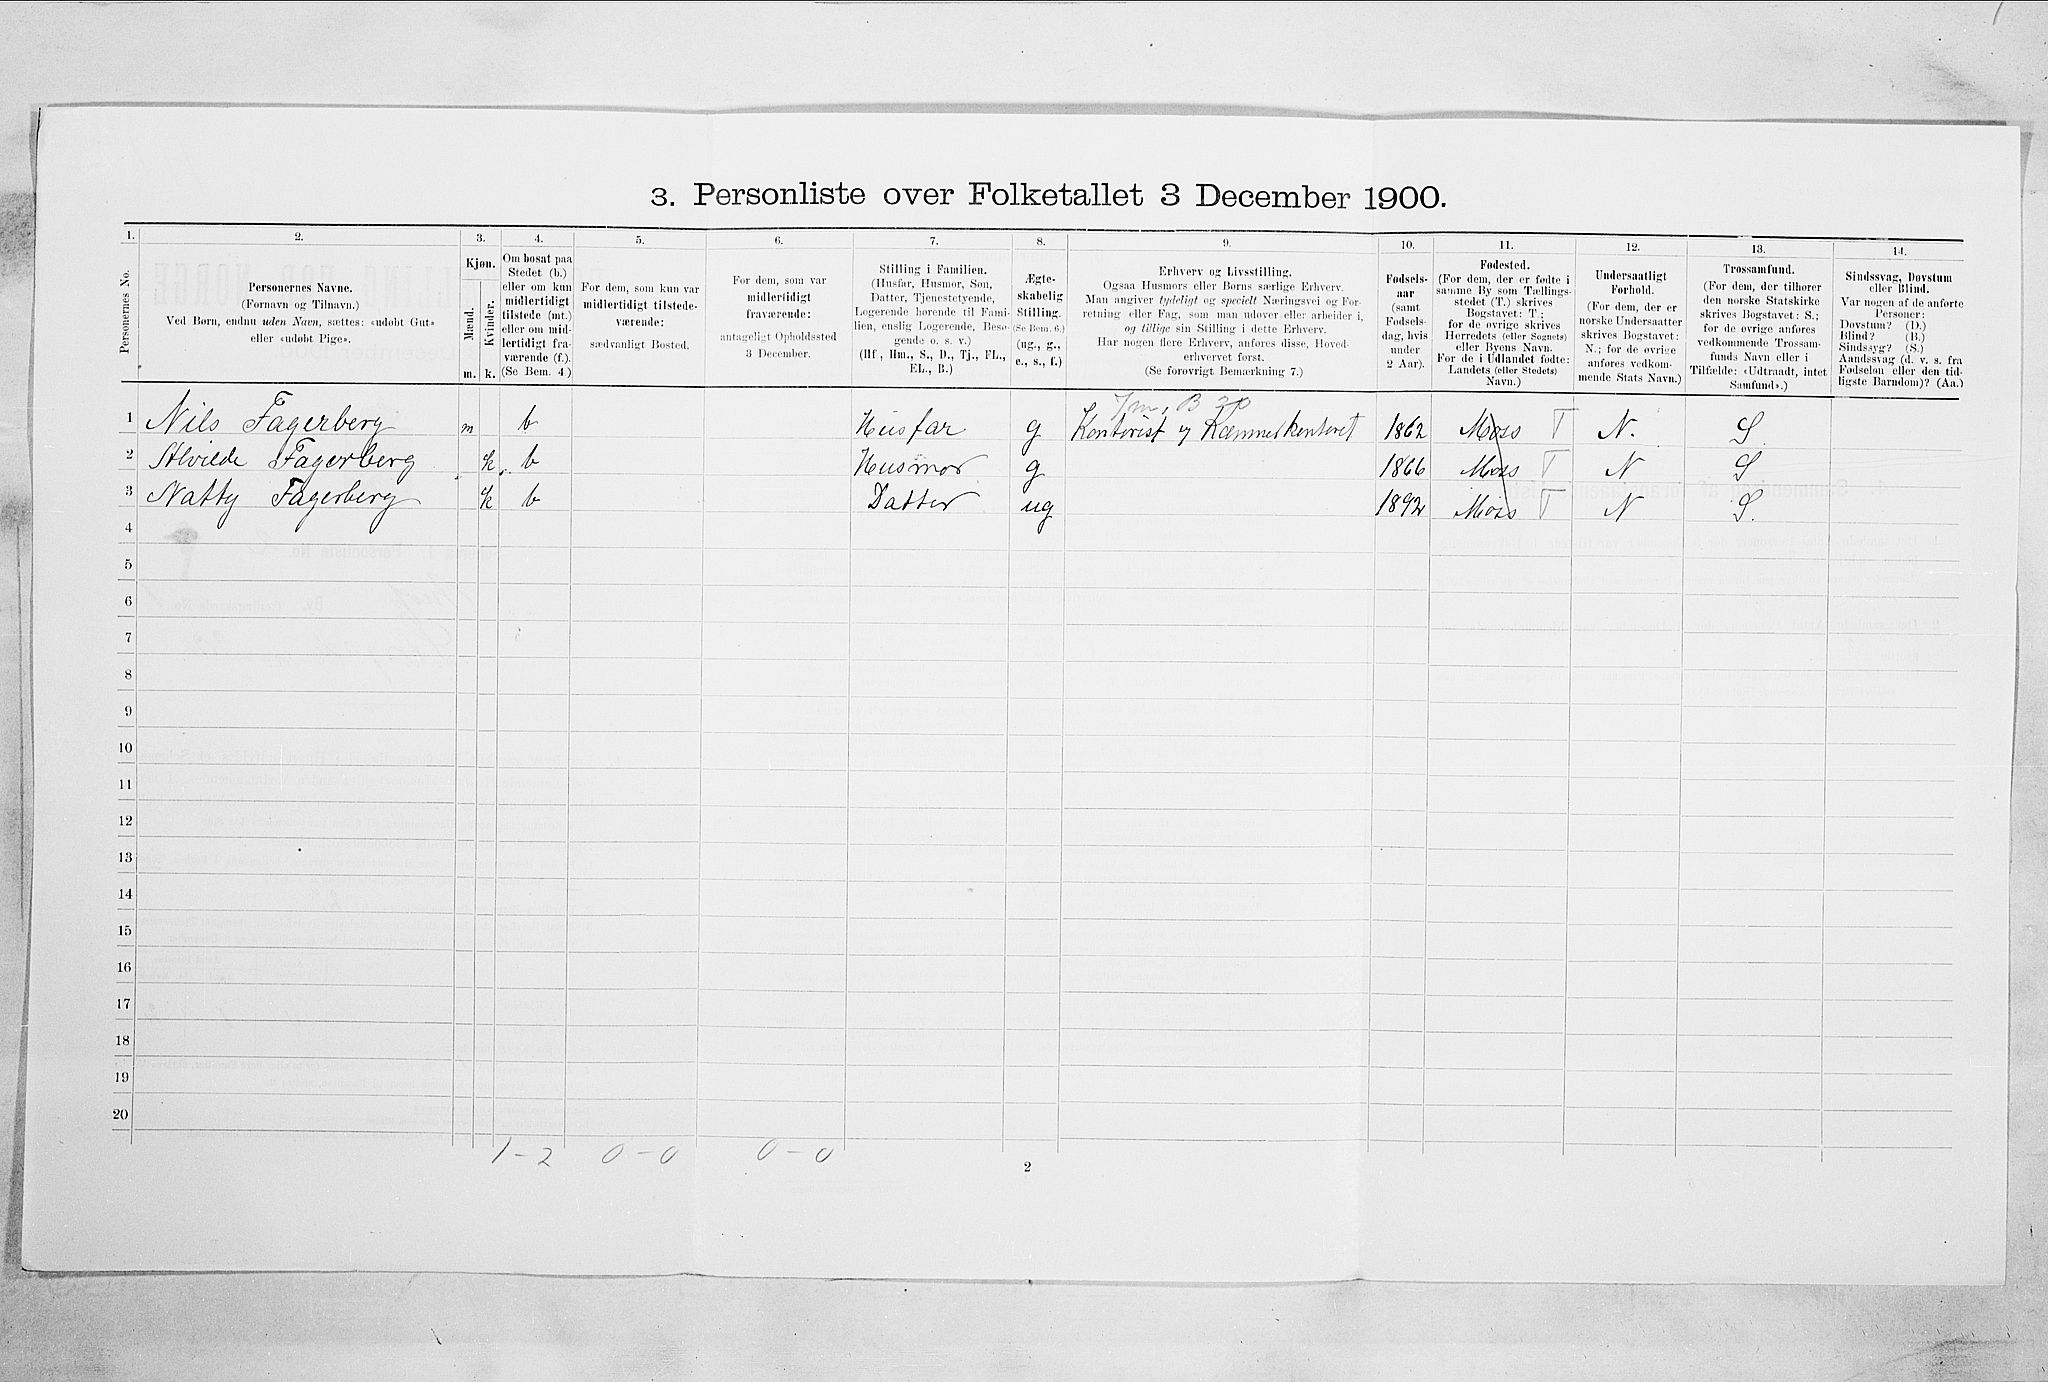 3. Personliste over Folketallet 3 December 1900.
1. 2. 3. 4. 5. 6. 7. 8. 9. 10. 11. 12. 13. 14.
Personernes No.
Personernes Navne.
(Fornavn og Tilnavn.)
Ved Børn, endnu uden Navn, sættes: «udøbt Gut»
eller «udøbt Pige».
Kjøn.
Mænd.
Kvinder.
m. k.
Om bosat paa
Stedet (b.)
eller om kun
midlertidigt
tilstede (mt.)
eller om mid-
lertidigt fra-
værende (f.).
(Se Bem. 4.)
For dem, som kun var
midlertidigt tilstede-
værende:
sædvanligt Bosted.
For dem, som var
midlertidigt
fraværende:
antageligt Opholdssted
3 December.
Stilling i Familien.
(Husfar, Husmor, Søn,
Datter, Tjenestetyende,
Logerende hørende til Fami-
lien, enslig Logerende, Besø-
gende o. s. v.)
(Hf., Hm., S., D., Tj., FL.,
EL., B.)
Ægte-
skabelig
Stilling.
(Se Bem. 6.)
(ug., g.,
e., s., f.)
Erhverv og Livsstilling.
Ogsaa Husmors eller Børns særlige Erhverv.
Man angiver tydeligt og specielt Næringsvei og For-
retning eller Fag, som man udøver eller arbeider i,
og tillige sin Stilling i dette Erhverv.
Har nogen flere Erhverv, anføres disse, Hoved-
erhvervet først.
(Se forøvrigt Bemærkning 7.)
Fødsels-
aar
(samt
Fødsels-
dag, hvis
under
2 Aar).
Fødested.
(For dem, der er fødte i
samme By som Tællings-
stedet (T.) skrives
Bogstavet: T;
for de øvrige skrives
Herredets (eller Sognets)
eller Byens Navn.
For de i Udlandet fødte:
Landets (eller Stedets)
Navn.)
Undersaatligt
Forhold.
(For dem, der er
norske Undersaatter
skrives Bogstavet:
N.; for de øvrige
anføres vedkom-
mende Stats Navn.)
Trossamfund.
(For dem, der tilhører
den norske Statskirke
skrives Bogstavet: S.;
for de øvrige anføres
vedkommende Trossam-
funds Navn eller i
Tilfælde: «Udtraadt, intet
Samfund».)
Sindssvag, Døvstum
eller Blind.
Var nogen af de anførte
Personer:
Døvstum? (D.)
Blind? (B.)
Sindssyg? (S.)
Aandssvag (d. v. s. fra
Fødselen eller den tid-
ligste Barndom)? (Aa.)
1 Nils Fagerberg m b Husfar g Kontorist v Kæmnerkontoret 1862 Moss T N. S.
2 Alvilde Fagerberg k b Husmor g 1866 Moss T N S
3 Natty Fagerberg k b Datter ug 1892 Moss T N S.
4
5
6
7
8
9
10
11
12
13
14
15
16
17
18
19
20
1-2 0-0 0-0
2